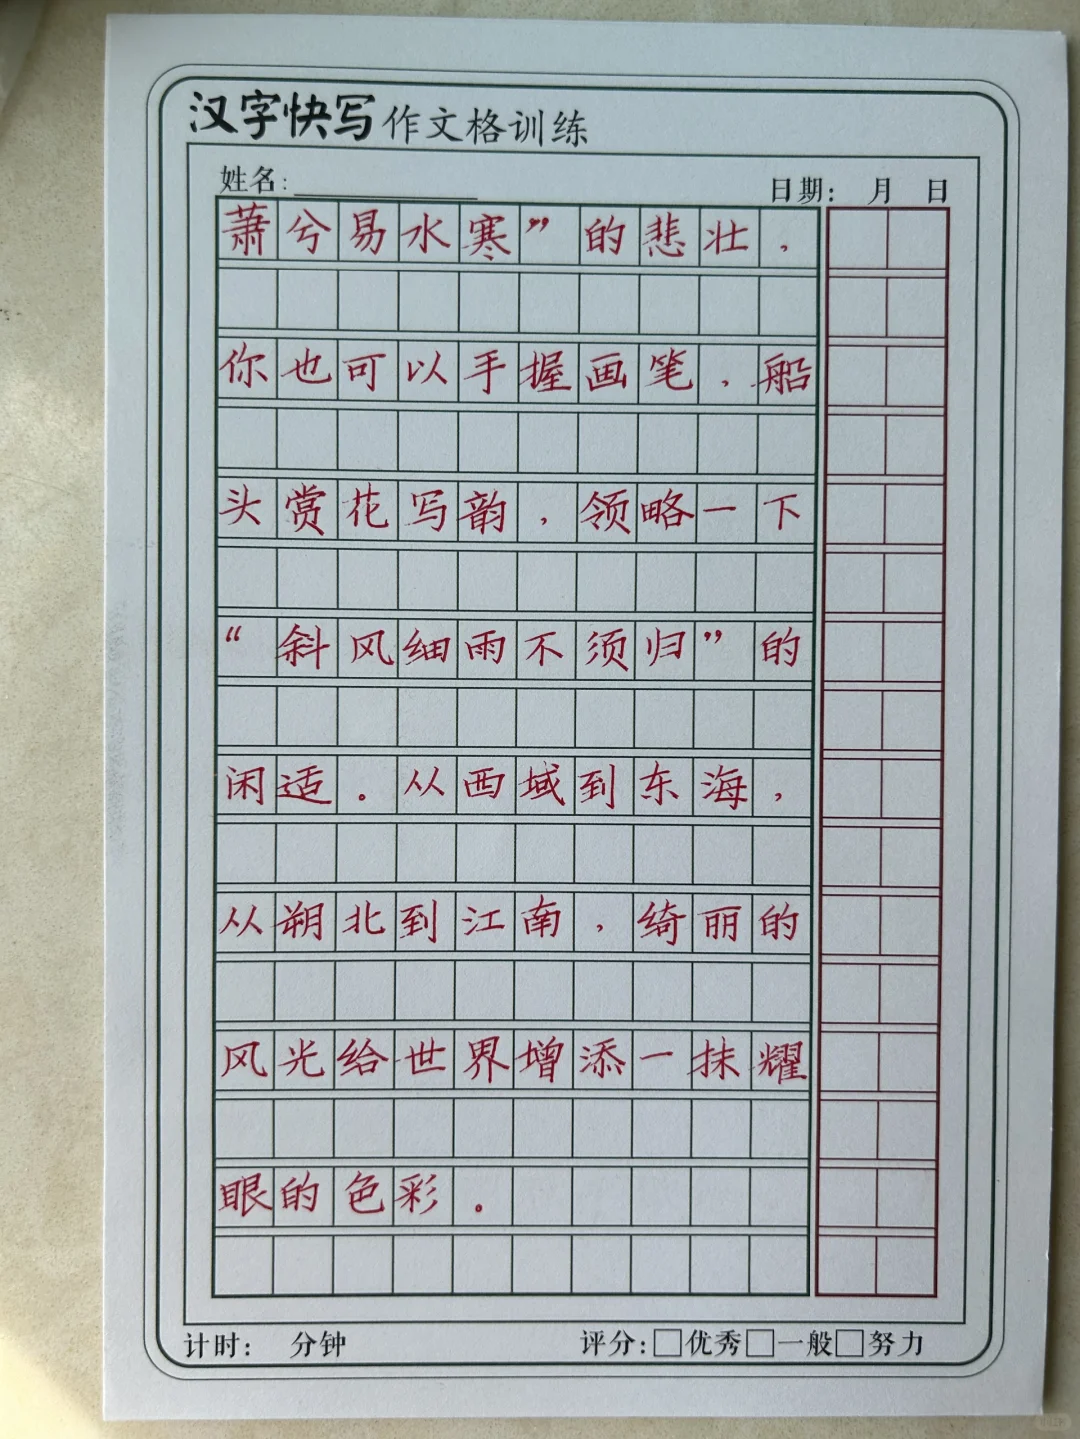 汉字快写作文格训练
姓名：
日期： 月 日
萧兮易水寒”的悲壮，
你也可以手握画笔，船
头赏花写韵，领略一下
“斜风细雨不须归”的
闲适。从西域到东海，
从朔北到江南，绮丽的
风光给世界增添一抹耀
眼的色彩。
计时： 分钟
评分：□优秀□一般□努力